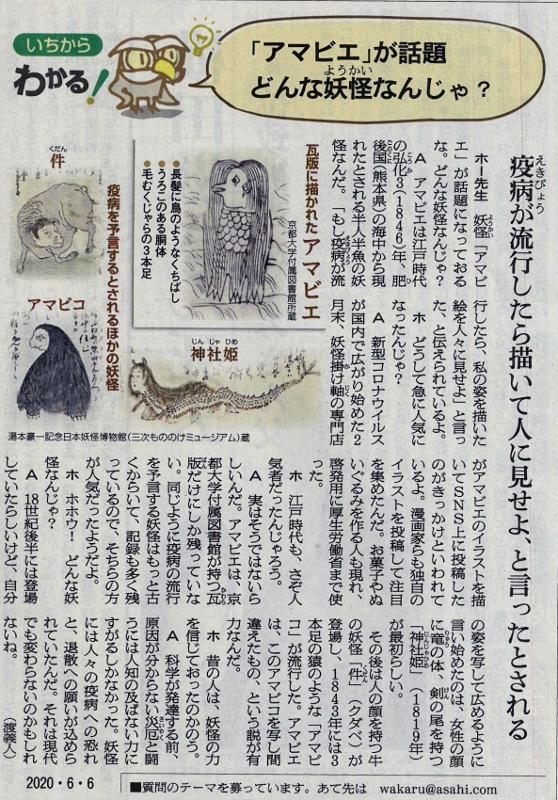 いちから
わかる!
「アマビエ」が話題
どんな妖怪なんじゃ？
ようかい
疫病が流行したら描いて人に見せよ、と言ったとされる
えきびょう
ホー先生　妖怪「アマビ
ようかい
エ」が話題になっておる
な。どんな妖怪なんじゃ？
A　アマビエは江戸時代
の弘化3（1846）年、肥
後国（熊本県）の海中から現
れたとされる半人半魚の妖
怪なんだ。「もし疫病が流
行したら、私の姿を描いた
絵を人々に見せよ」と言っ
た、と伝えられているよ。
ホ　どうして急に人気に
なったんじゃ？
A　新型コロナウイルス
が国内で広がり始めた2
月末、妖怪掛け軸の専門店
がアマビエのイラストを描
いてSNS上に投稿した
のがきっかけといわれて
いるよ。漫画家らも独自の
イラストを投稿して注目
を集めたんだ。お菓子やぬ
いぐるみを作る人も現れ、
啓発用に厚生労働省まで使
った。
ホ　江戸時代も、さぞ人
気者だったんじゃろう。
A　実はそうではないら
しいんだ。アマビエは、京
都大学付属図書館が持つ瓦
版だけにしか残っていな
い。同じように疫病の流行
を予言する妖怪はもっと古
くからいて、記録も多く残
っているので、そちらの方
が人気だったようだよ。
ホ　ホホウ！　どんな妖
怪なんじゃ？
A　18世紀後半には登場
していたらしいけど、自分
の姿を写して広めるように
言い始めたのは、女性の顔
に竜の体、剣の尾を持つ
「神社姫」（1819年）
が最初らしい。
その後は人の顔を持つ牛
の妖怪「件」（クダベ）が
登場し、1843年には3
本足の猿のような「アマビ
コ」が流行した。アマビエ
は、このアマビコを写し間
違えたもの、という説が有
力なんだ。
ホ　昔の人は、妖怪の力
を信じておったのかのう。
A　科学が発達する前、
原因が分からない災厄と闘
うには人知の及ばない力に
すがるしかなかった。妖怪
には人々の疫病への恐れ
と、退散への願いが込めら
れていたんだ。それは現代
でも変わらないのかもしれ
ないね。
（渡義人）
瓦版に描かれたアマビエ
京都大学付属図書館所蔵
●長髪に鳥のようなくちばし
●うろこのある胴体
●毛むくじゃらの3本足
疫病を予言するとされるほかの妖怪
くだん
件
アマビコ
じんじゃひめ
神社姫
湯本豪一記念日本妖怪博物館（三次もののけミュージアム）蔵
2020・6・6
■質問のテーマを募っています。あて先は　wakaru@asahi.com